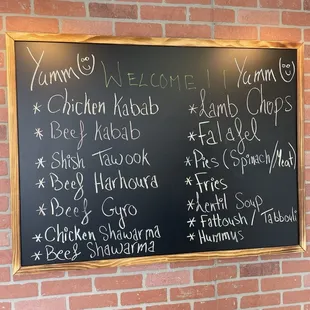 Yumm Welcome!! Yumm
* Chicken Kabab
* Beef Kabab
* Shish Tawook
* Beef Harhoura
* Beef Gyro
* Chicken Shawarma
* Beef Shawarma
* Lamb Chops
* Falafel
* Pies (Spinach/Meat)
* Fries
* Lentil Soup
* Fattoush / Tabbouli
* Hummus